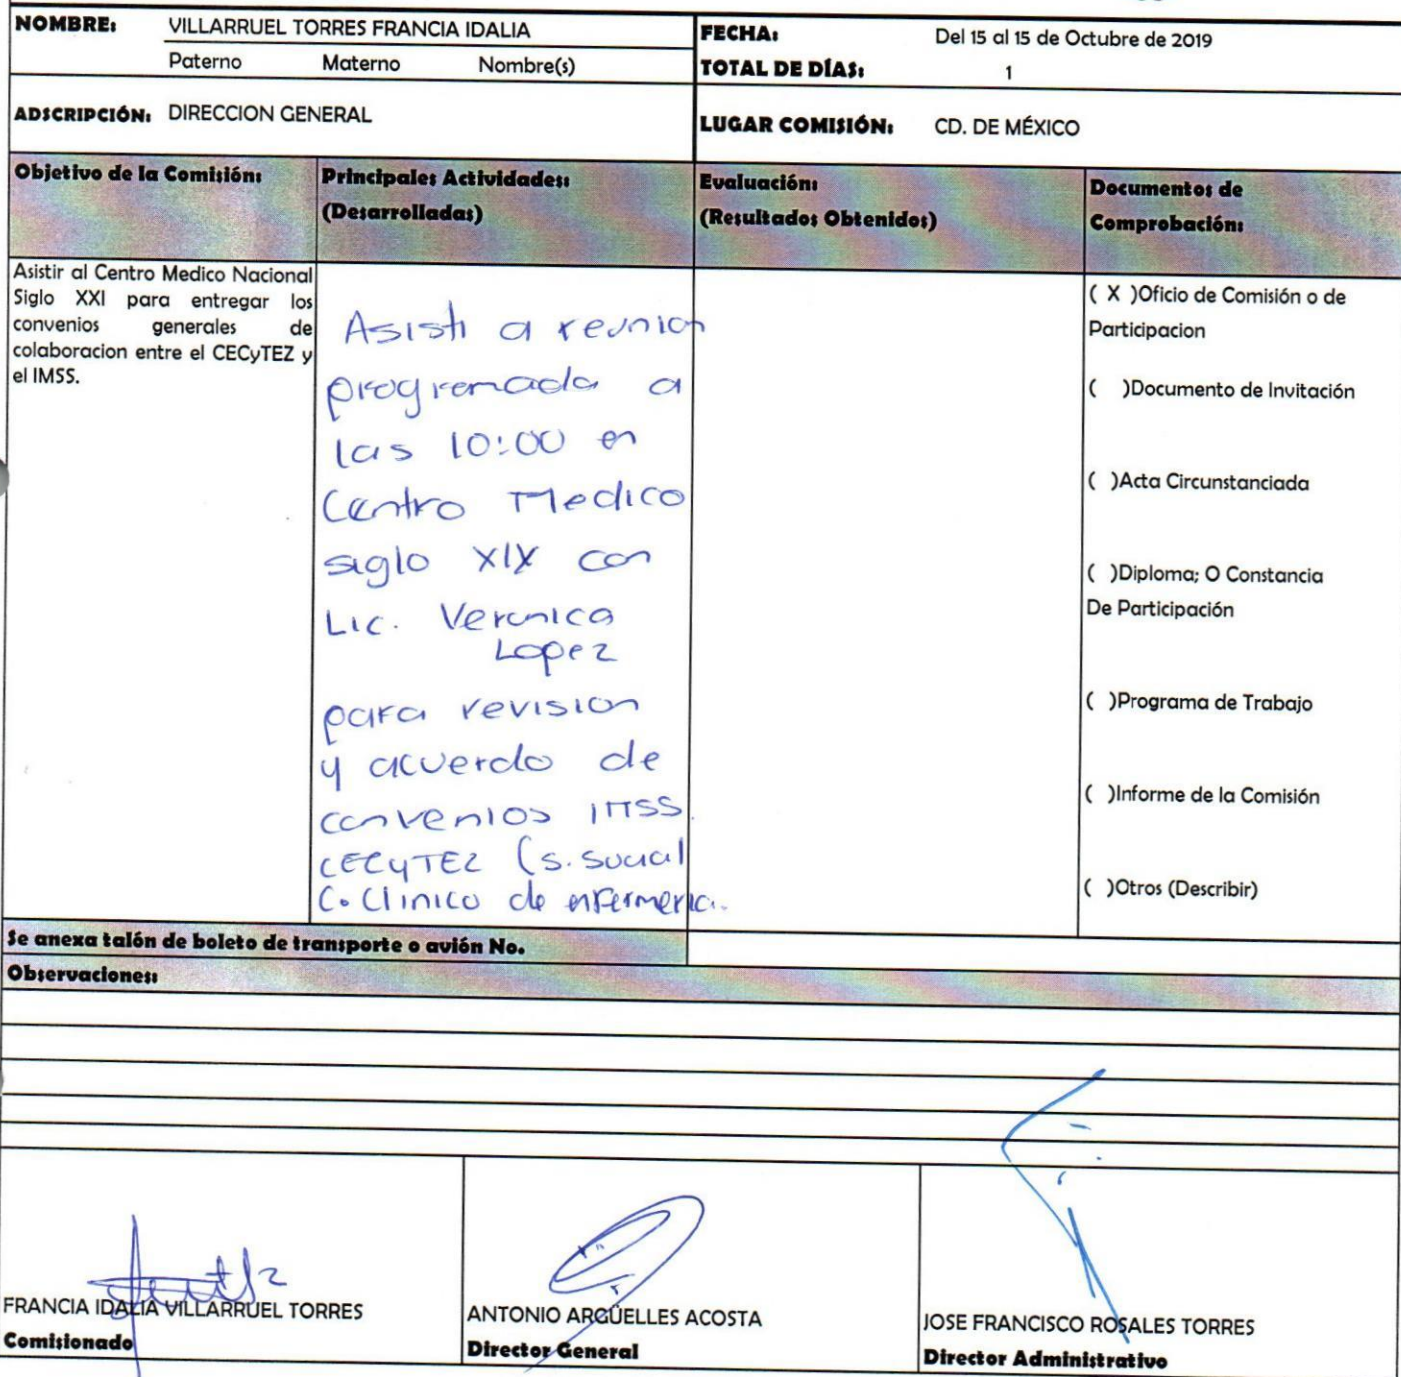 NOMBRE: VILLARRUEL TORRES FRANCIA IDALIA
Paterno Materno Nombre(s)
FECHA: Del 15 al 15 de Octubre de 2019
TOTAL DE DÍAS: 1
ADSCRIPCIÓN: DIRECCION GENERAL
LUGAR COMISIÓN: CD. DE MÉXICO
Objetivo de la Comisión:
Principales Actividades:
(Desarrolladas)
Evaluación:
(Resultados Obtenidos)
Documentos de
Comprobación:
Asistir al Centro Medico Nacional
Siglo XXI para entregar los
convenios generales de
colaboracion entre el CECyTEZ y
el IMSS.
Asisti a reunion
programada a
las 10:00 en
Centro Medico
siglo XIX con
Lic. Veronica
Lopez
para revision
y acuerdo de
convenios IMSS
CECyTEZ (s. social
C. Clinico de enfermeria.
( X )Oficio de Comisión o de
Participacion
( )Documento de Invitación
( )Acta Circunstanciada
( )Diploma; O Constancia
De Participación
( )Programa de Trabajo
( )Informe de la Comisión
( )Otros (Describir)
Se anexa talón de boleto de transporte o avión No.
Observaciones:
FRANCIA IDALIA VILLARRUEL TORRES
Comisionado
ANTONIO ARGÜELLES ACOSTA
Director General
JOSE FRANCISCO ROSALES TORRES
Director Administrativo